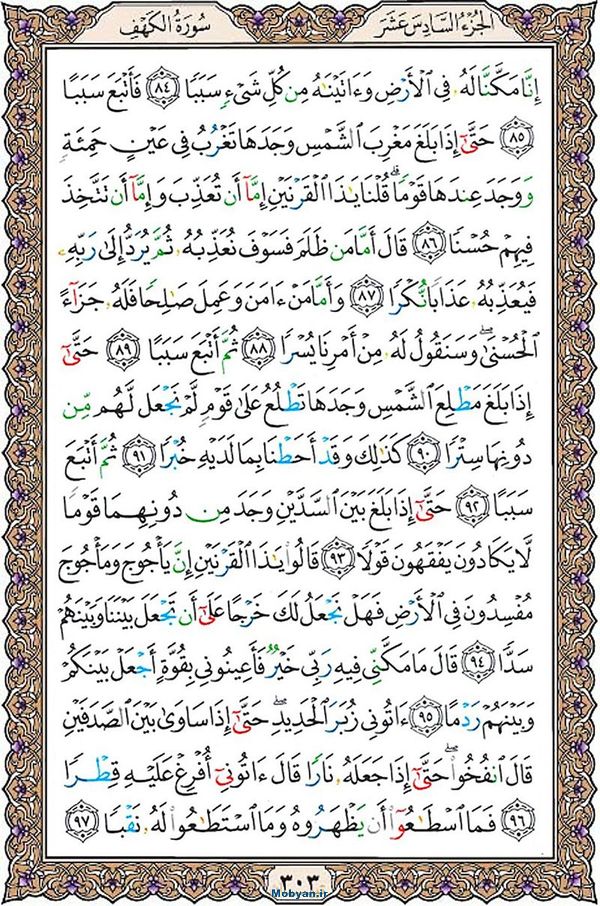 الجُزءُ السَّادِسَ عَشَرَ
سُورَةُ الكَهْفِ
إِنَّا مَكَّنَّا لَهُۥ فِى ٱلْأَرْضِ وَءَاتَيْنَٰهُ مِن كُلِّ شَىْءٍ سَبَبًا ﴿٨٤﴾ فَأَتْبَعَ سَبَبًا
﴿٨٥﴾ حَتَّىٰٓ إِذَا بَلَغَ مَغْرِبَ ٱلشَّمْسِ وَجَدَهَا تَغْرُبُ فِى عَيْنٍ حَمِئَةٍ
وَوَجَدَ عِندَهَا قَوْمًا ۗ قُلْنَا يَٰذَا ٱلْقَرْنَيْنِ إِمَّآ أَن تُعَذِّبَ وَإِمَّآ أَن تَتَّخِذَ
فِيهِمْ حُسْنًا ﴿٨٦﴾ قَالَ أَمَّا مَن ظَلَمَ فَسَوْفَ نُعَذِّبُهُۥ ثُمَّ يُرَدُّ إِلَىٰ رَبِّهِۦ
فَيُعَذِّبُهُۥ عَذَابًا نُّكْرًا ﴿٨٧﴾ وَأَمَّا مَنْ ءَامَنَ وَعَمِلَ صَٰلِحًا فَلَهُۥ جَزَآءً
ٱلْحُسْنَىٰ ۖ وَسَنَقُولُ لَهُۥ مِنْ أَمْرِنَا يُسْرًا ﴿٨٨﴾ ثُمَّ أَتْبَعَ سَبَبًا ﴿٨٩﴾ حَتَّىٰٓ
إِذَا بَلَغَ مَطْلِعَ ٱلشَّمْسِ وَجَدَهَا تَطْلُعُ عَلَىٰ قَوْمٍ لَّمْ نَجْعَل لَّهُم مِّن
دُونِهَا سِتْرًا ﴿٩٠﴾ كَذَٰلِكَ وَقَدْ أَحَطْنَا بِمَا لَدَيْهِ خُبْرًا ﴿٩١﴾ ثُمَّ أَتْبَعَ
سَبَبًا ﴿٩٢﴾ حَتَّىٰٓ إِذَا بَلَغَ بَيْنَ ٱلسَّدَّيْنِ وَجَدَ مِن دُونِهِمَا قَوْمًا
لَّا يَكَادُونَ يَفْقَهُونَ قَوْلًا ﴿٩٣﴾ قَالُوا۟ يَٰذَا ٱلْقَرْنَيْنِ إِنَّ يَأْجُوجَ وَمَأْجُوجَ
مُفْسِدُونَ فِى ٱلْأَرْضِ فَهَلْ نَجْعَلُ لَكَ خَرْجًا عَلَىٰٓ أَن تَجْعَلَ بَيْنَنَا وَبَيْنَهُمْ
سَدًّا ﴿٩٤﴾ قَالَ مَا مَكَّنِّى فِيهِ رَبِّى خَيْرٌ فَأَعِينُونِى بِقُوَّةٍ أَجْعَلْ بَيْنَكُمْ
وَبَيْنَهُمْ رَدْمًا ﴿٩٥﴾ ءَاتُونِى زُبَرَ ٱلْحَدِيدِ ۖ حَتَّىٰٓ إِذَا سَاوَىٰ بَيْنَ ٱلصَّدَفَيْنِ
قَالَ ٱنفُخُوا۟ ۖ حَتَّىٰٓ إِذَا جَعَلَهُۥ نَارًا قَالَ ءَاتُونِىٓ أُفْرِغْ عَلَيْهِ قِطْرًا
﴿٩٦﴾ فَمَا ٱسْطَٰعُوٓا۟ أَن يَظْهَرُوهُ وَمَا ٱسْتَطَٰعُوا۟ لَهُۥ نَقْبًا ﴿٩٧﴾
٣٠٣
Mobyan.ir